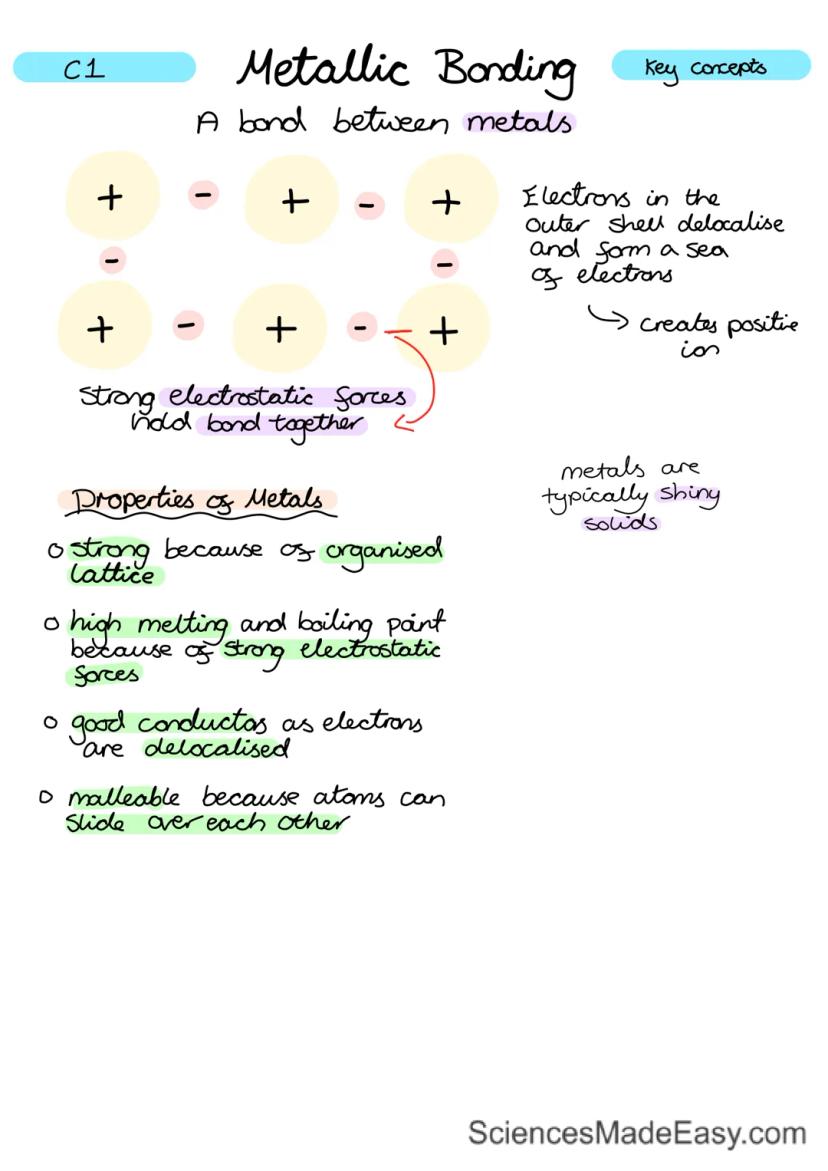 C1
Metallic Bonding
Key concepts
A bond between metals
+ - + - +
- -
+ - + - +
Electrons in the
outer shell delocalise
and form a sea
of electrons
creates positive
ion
Strong electrostatic forces
hold bond together
metals are
typically shiny
solids
Properties of Metals
strong because of organised
lattice
high melting and boiling point
because of strong electrostatic
forces
good conductos as electrons
are delocalised
malleable because atoms can
slide over each other
SciencesMadeEasy.com